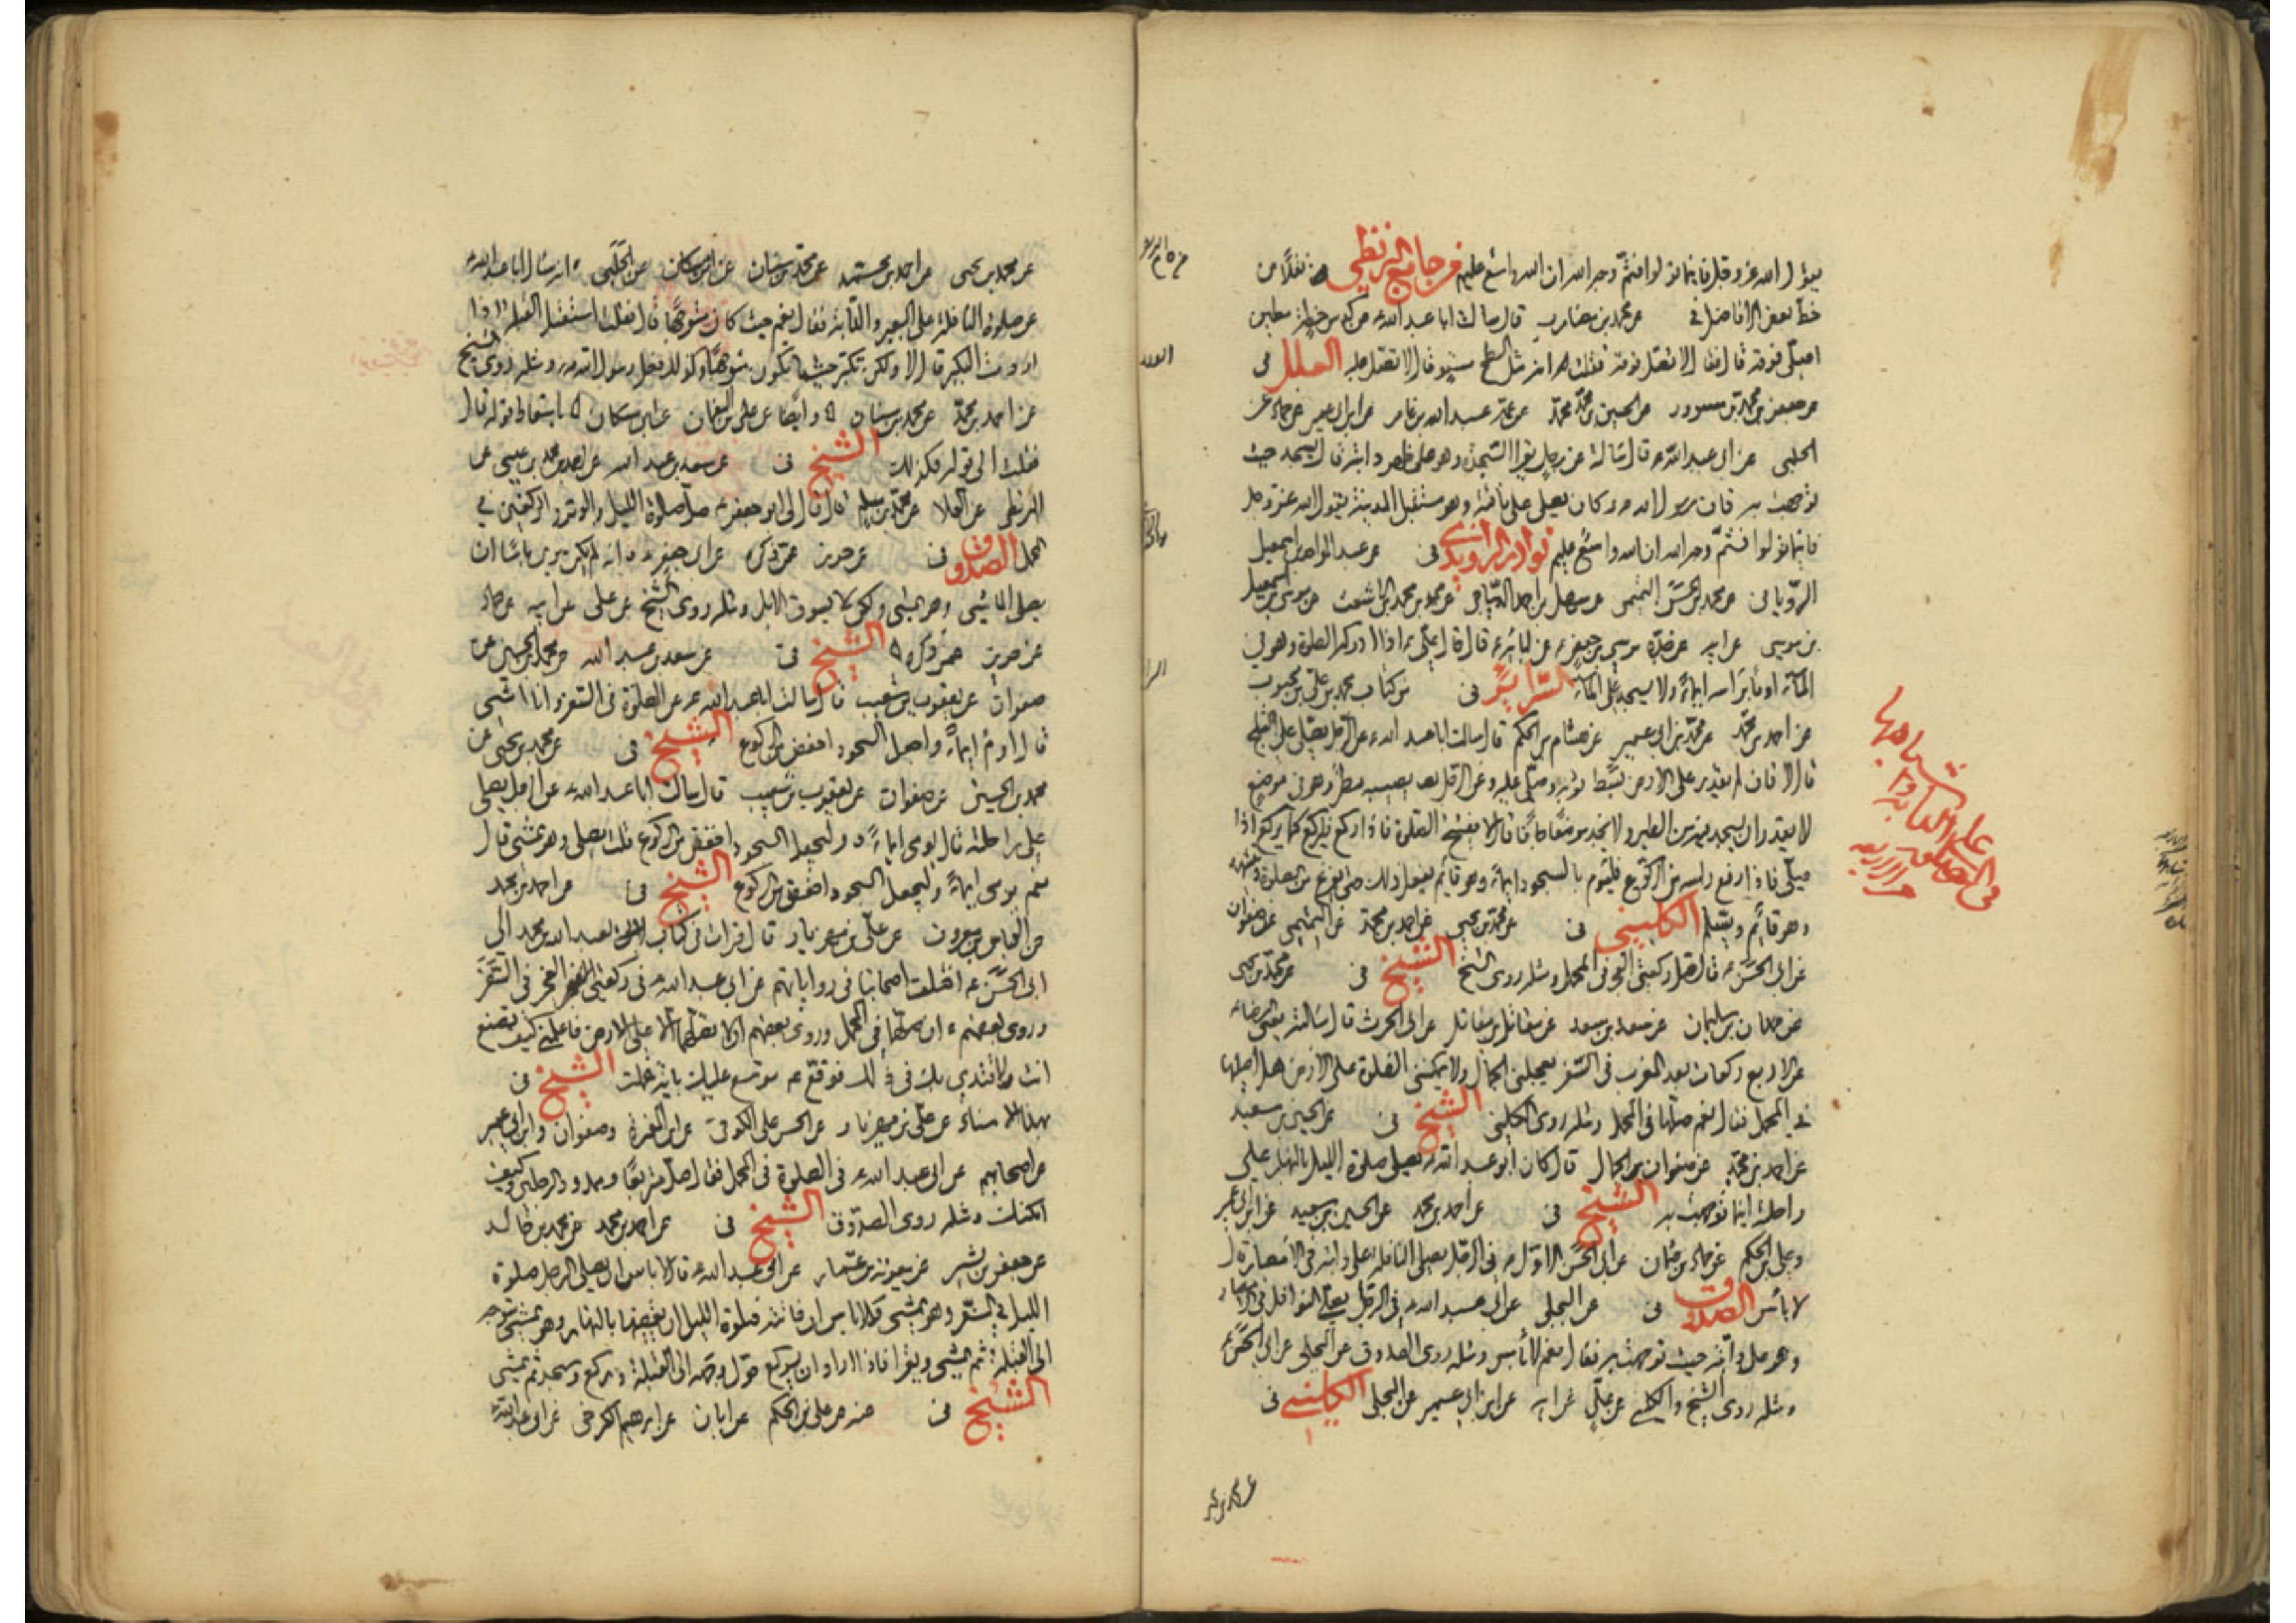 يقول الله عز وجل فاينما تولوا فثم وجه الله ان الله واسع عليم من جامع البزنطي نقلا من
خط بعض الافاضل في عن محمد بن مضارب قال سالت ابا عبد الله عن كدس حنطة مطين
اصلي فوقه قال فقال لا تصل فوقه قلت فانه مثل السطح مستو قال لا تصل عليه العلل في
عن جعفر بن محمد بن مسرور عن الحسين بن محمد عن عمه عبد الله بن عامر عن ابن ابي عمير عن حماد عن
الحلبي عن ابي عبد الله قال سالته عن رجل يقرا السجدة وهو على ظهر دابته قال يسجد حيث
توجهت به فان رسول الله كان يصلي على ناقته وهو مستقبل المدينة يقول الله عز وجل
فاينما تولوا فثم وجه الله ان الله واسع عليم نوادر الراوندي في عن عبد الواحد بن اسمعيل
الروياني عن محمد بن الحسن التميمي عن سهل بن احمد الديباجي عن محمد بن محمد بن الاشعث عن موسى بن اسمعيل
بن موسى عن ابيه عن جده موسى بن جعفر عن ابائه قال قال علي اذا ادركه الصلوة وهو في
الماء اومأ براسه ايماء ولا يسجد على الماء السرائر في من كتاب محمد بن علي بن محبوب
عن احمد بن محمد عن محمد بن ابي عمير عن هشام بن الحكم قال سالت ابا عبد الله عن الرجل يصلي على الثلج
قال لا فان لم يقدر على الارض بسط ثوبه وصلى عليه وعن الرجل يصيبه مطر وهو في موضع
لا يقدر ان يسجد فيه من الطين ولا يجد موضعا جافا قال يفتتح الصلوة فاذا ركع فليركع كما يركع اذا
صلى فاذا رفع راسه من الركوع فليوم بالسجود ايماء وهو قائم يفعل ذلك حتى يفرغ من الصلوة ويتشهد
وهو قائم ويسلم الكليني في عن محمد بن يحيى عن احمد بن محمد عن التميمي عن صفوان
عن ابي الحسن قال صل ركعتي الفجر في المحمل ومثله روى الشيخ الشيخ في عن محمد بن يحيى
عن حمدان بن سليمان عن سعد بن سعد عن مقاتل بن مقاتل عن ابي الحرث قال سالته يعني الرضا
عن الاربع ركعات بعد المغرب في السفر يعجلني الجمال ولا يمكنني الصلوة على الارض هل اصليها
في المحمل فقال نعم صلها في المحمل ومثله روى الكليني الشيخ في عن الحسين بن سعيد
عن احمد بن محمد عن صفوان الجمال قال كان ابو عبد الله يصلي صلوة الليل بالنهار على
راحلته اينما توجهت به الشيخ في عن احمد بن محمد عن الحسين بن سعيد عن ابن ابي عمير
وعلي بن الحكم عن حماد بن عثمان عن ابي الحسن الاول في الرجل يصلي النافلة على دابته في الامصار قال
لا باس الصدوق في عن البجلي عن ابي عبد الله في الرجل يصلي النوافل في الامصار
وهو على دابته حيث توجهت به فقال نعم لا باس ومثله روى الصدوق عن البجلي عن ابي الحسن
ومثله روى الشيخ والكليني عن علي عن ابيه عن ابن ابي عمير عن البجلي الكليني في
عن محمد بن يحيى عن احمد بن محمد عن محمد بن سنان عن ابن مسكان عن الحلبي انه سال ابا عبد الله
عن صلوة النافلة على البعير والدابة فقال نعم حيث كان متوجها قال فقلت استقبل القبلة اذا
اردت التكبير قال لا ولكن تكبر حيث ما تكون متوجها وكذلك فعل رسول الله ومثله روى الشيخ
عن احمد بن محمد عن محمد بن سنان وايضا عن علي بن النعمان عن ابن مسكان باسقاط قوله قال
فقلت الى قوله فكذلك الشيخ في عن سعد بن عبد الله عن احمد بن محمد بن عيسى عن
البزنطي عن العلا عن محمد بن مسلم قال قال لي ابو جعفر صل صلوة الليل والوتر والركعتين في
المحمل الصدوق في عن حريز عمن ذكره عن ابي جعفر انه لم يكن يرى باسا ان
يصلي الماشي وهو يمشي ولكن لا يسوق الابل ومثله روى الشيخ عن علي عن ابيه عن حماد
عن حريز عمن ذكره الشيخ في عن سعد بن عبد الله عن محمد بن الحسين عن
صفوان عن يعقوب بن شعيب قال سالت ابا عبد الله عن الصلوة في السفر وانا امشي
قال اوم ايماء واجعل السجود اخفض من الركوع الشيخ في عن محمد بن يحيى عن
محمد بن الحسين عن صفوان عن يعقوب بن شعيب قال سالت ابا عبد الله عن الرجل يصلي
على راحلته قال يومي ايماء وليجعل السجود اخفض من الركوع قلت يصلي وهو يمشي قال
نعم يومي ايماء وليجعل السجود اخفض من الركوع الشيخ في عن احمد بن محمد
عن العباس بن معروف عن علي بن مهزيار قال قرات في كتاب لعبد الله بن محمد الى
ابي الحسن اختلف اصحابنا في رواياتهم عن ابي عبد الله في ركعتي الفجر في السفر
وروى بعضهم ان صلها في المحمل وروى بعضهم ان لا تصلهما الا على الارض فاعلمني كيف تصنع
انت لاقتدي بك في ذلك فوقع موسع عليك باية عملت الشيخ في
بهذا الاسناد عن علي بن مهزيار عن الحسن بن علي الكوفي عن ابن المغيرة وصفوان وابن ابي عمير
عن اصحابهم عن ابي عبد الله في الصلوة في المحمل فقال صل متربعا وممدود الرجلين وكيف
امكنك ومثله روى الصدوق الشيخ في عن احمد بن محمد عن محمد بن خالد
عن جعفر بن بشير عن معوية بن عمار عن ابي عبد الله قال لا باس ان يصلي الرجل صلوة
الليل في السفر وهو يمشي ولا باس ان فاتته صلوة الليل ان يقضيها بالنهار وهو يمشي يتوجه
الى القبلة ثم يمشي ويقرا فاذا اراد ان يركع حول وجهه الى القبلة وركع وسجد ثم مشى
الشيخ في عنه عن علي بن الحكم عن ابان عن ابراهيم الكرخي عن ابي عبد الله